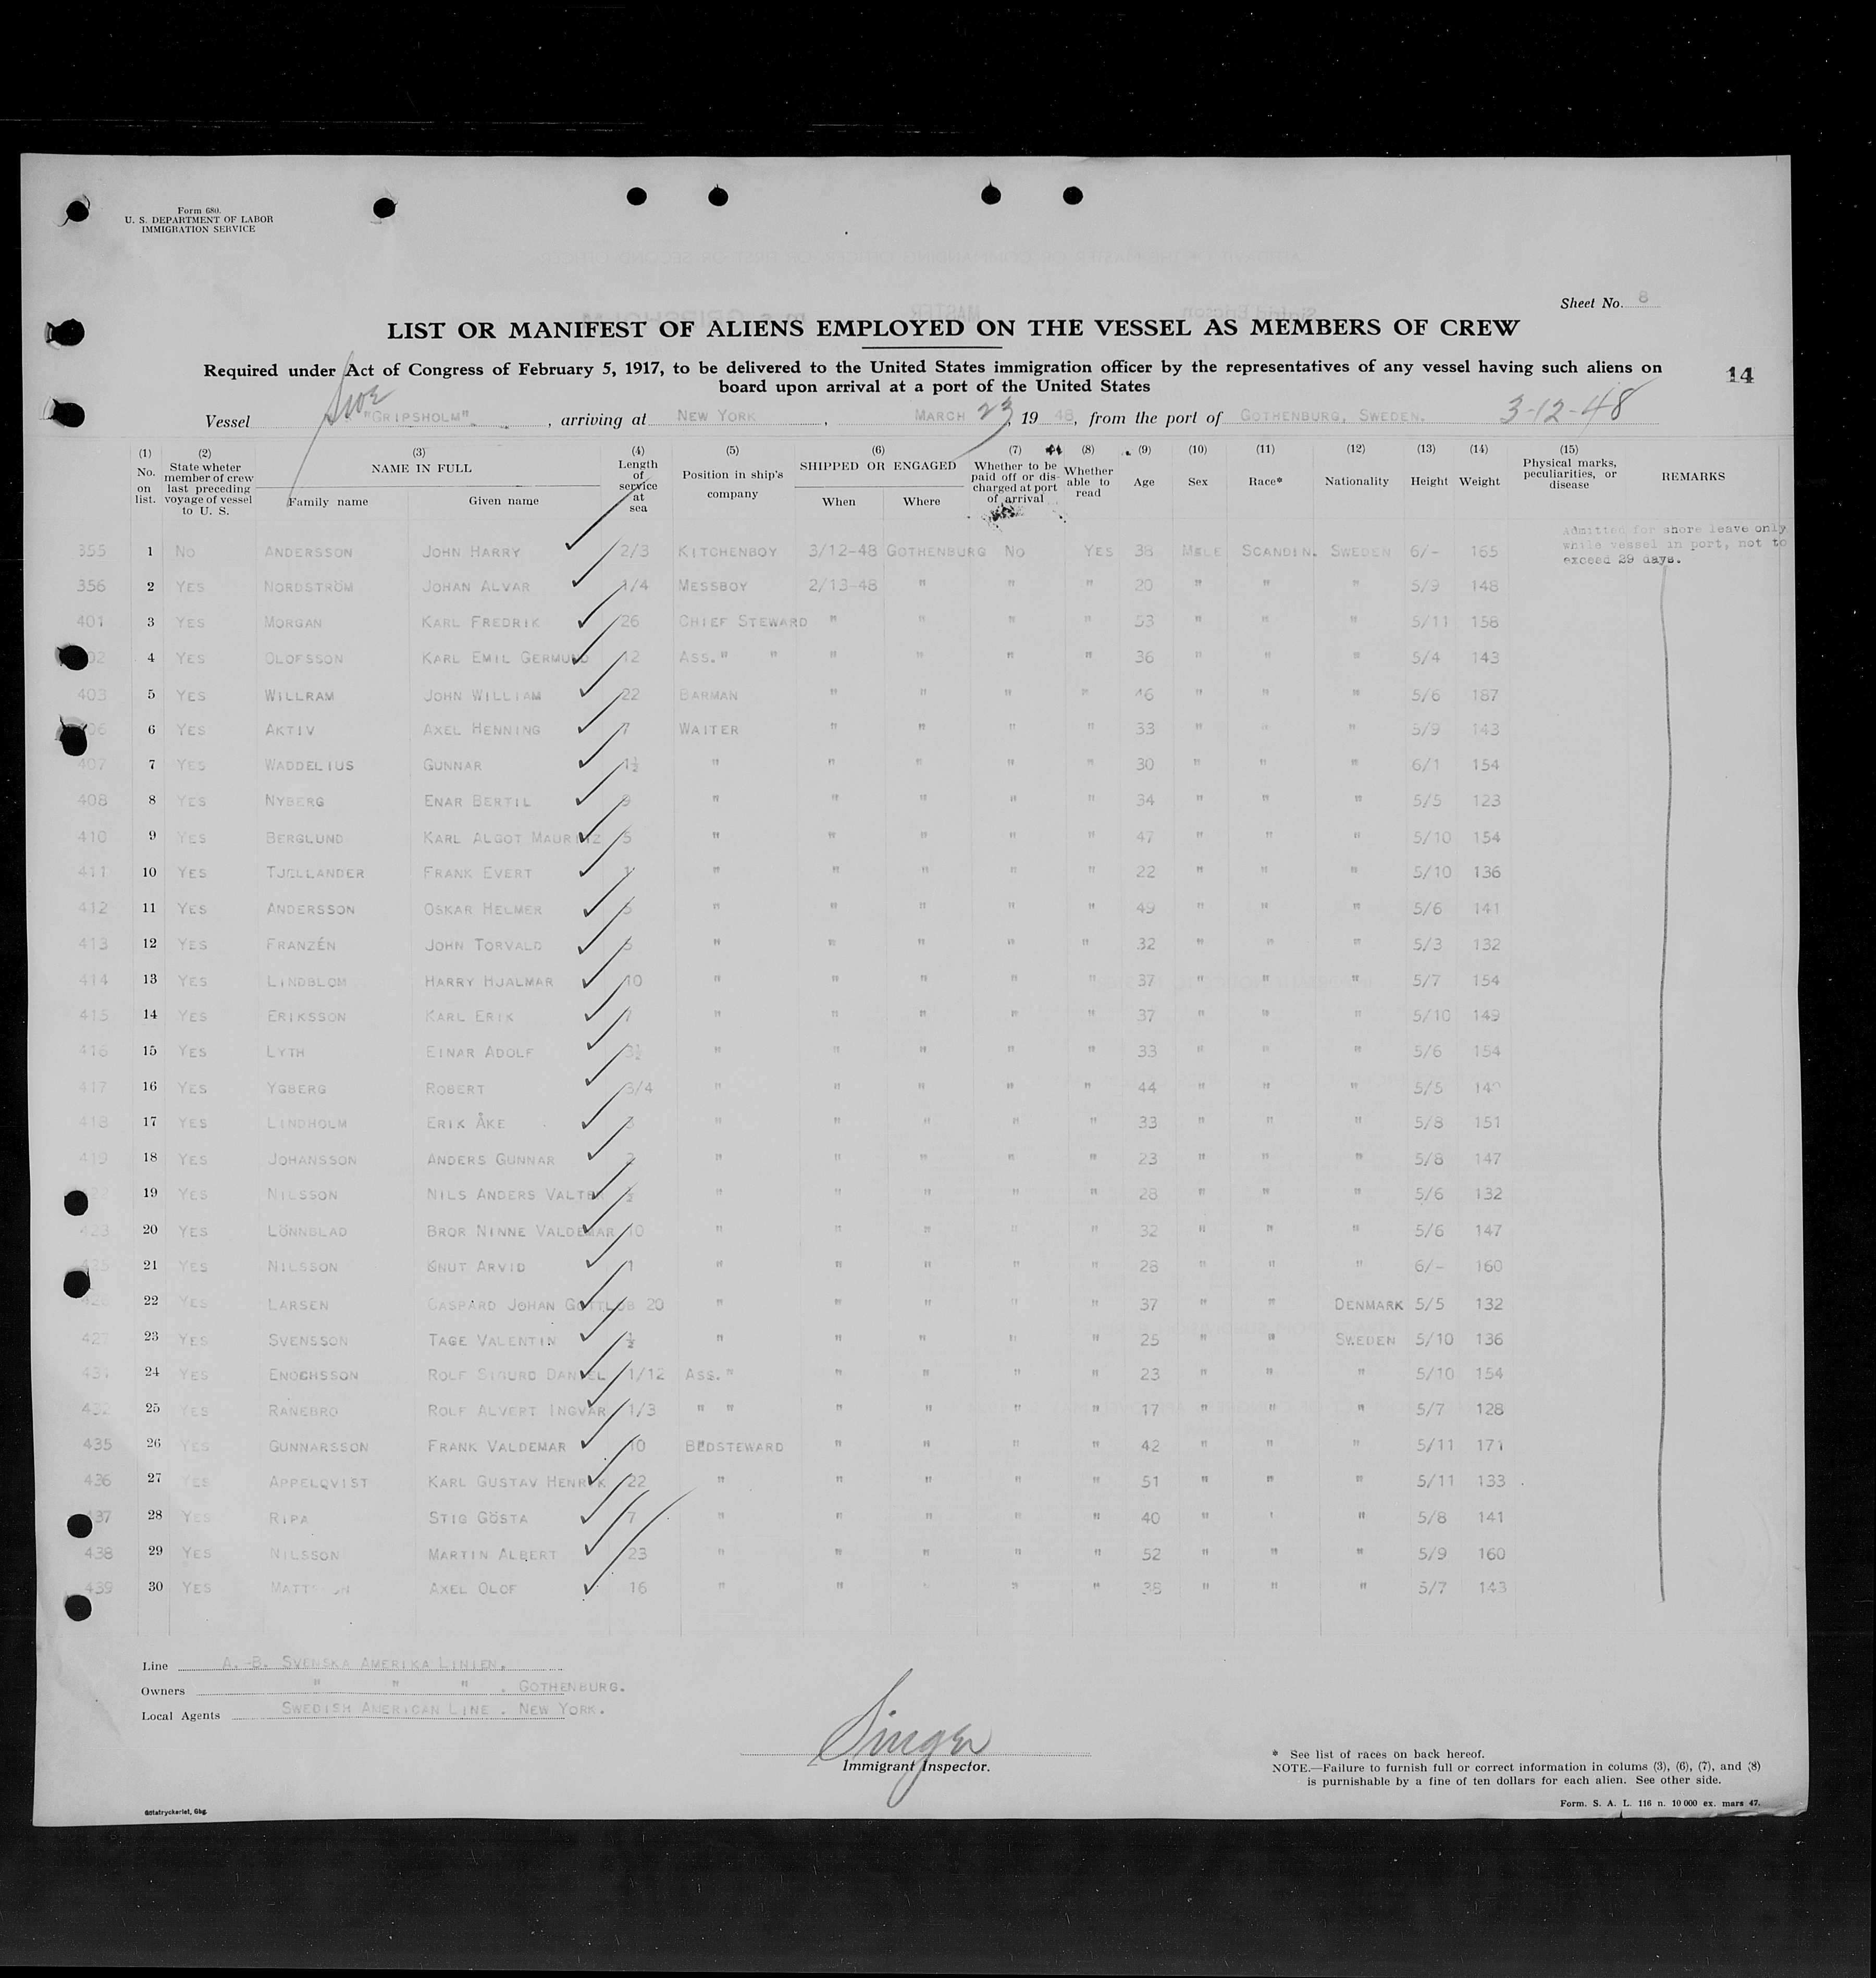 Form 680.
U. S. DEPARTMENT OF LABOR
IMMIGRATION SERVICE
Sheet No. 8
LIST OR MANIFEST OF ALIENS EMPLOYED ON THE VESSEL AS MEMBERS OF CREW
Required under Act of Congress of February 5, 1917, to be delivered to the United States immigration officer by the representatives of any vessel having such aliens on
board upon arrival at a port of the United States
14
Vessel "GRIPSHOLM", arriving at NEW YORK, MARCH 23, 19 48, from the port of GOTHENBURG, SWEDEN. 3-12-48
(1) No. on list.
(2) State wheter member of crew last preceding voyage of vessel to U. S.
(3) NAME IN FULL Family name Given name
(4) Length of service at sea
(5) Position in ship's company
(6) SHIPPED OR ENGAGED When Where
(7) Whether to be paid off or discharged at port of arrival
(8) Whether able to read
(9) Age
(10) Sex
(11) Race*
(12) Nationality
(13) Height
(14) Weight
(15) Physical marks, peculiarities, or disease
REMARKS
Admitted for shore leave only
while vessel in port, not to
exceed 29 days.
355 1 NO ANDERSSON JOHN HARRY 2/3 KITCHENBOY 3/12-48 GOTHENBURG NO YES 38 MALE SCANDIN. SWEDEN 6/- 165
356 2 YES NORDSTRÖM JOHAN ALVAR 1/4 MESSBOY 2/13-48 " " " 20 " " " 5/9 148
401 3 YES MORGAN KARL FREDRIK 26 CHIEF STEWARD " " " " 53 " " " 5/11 158
4 YES OLOFSSON KARL EMIL GERMUND 12 ASS. " " " " " " 36 " " " 5/4 143
403 5 YES WILLRAM JOHN WILLIAM 22 BARMAN " " " " 46 " " " 5/6 187
6 YES AKTIV AXEL HENNING 7 WAITER " " " " 33 " " " 5/9 143
407 7 YES WADDELIUS GUNNAR 1½ " " " " " 30 " " " 6/1 154
408 8 YES NYBERG ENAR BERTIL 9 " " " " " 34 " " " 5/5 123
410 9 YES BERGLUND KARL ALGOT MAURITZ 5 " " " " " 47 " " " 5/10 154
411 10 YES TJELLANDER FRANK EVERT 1 " " " " " 22 " " " 5/10 136
412 11 YES ANDERSSON OSKAR HELMER " " " " " 49 " " " 5/6 141
413 12 YES FRANZÉN JOHN TORVALD " " " " " 32 " " " 5/3 132
414 13 YES LINDBLOM HARRY HJALMAR 10 " " " " " 37 " " " 5/7 154
415 14 YES ERIKSSON KARL ERIK 7 " " " " " 37 " " " 5/10 149
416 15 YES LYTH EINAR ADOLF 3½ " " " " " 33 " " " 5/6 154
417 16 YES YGBERG ROBERT 3/4 " " " " " 44 " " " 5/5
418 17 YES LINDHOLM ERIK ÅKE 3 " " " " " 33 " " " 5/8 151
419 18 YES JOHANSSON ANDERS GUNNAR 2 " " " " " 23 " " " 5/8 147
19 YES NILSSON NILS ANDERS VALTER ½ " " " " " 28 " " " 5/6 132
423 20 YES LÖNNBLAD BROR NINNE VALDEMAR 10 " " " " " 32 " " " 5/6 147
21 YES NILSSON KNUT ARVID 1 " " " " " 28 " " " 6/- 160
22 YES LARSEN CASPARD JOHAN GOTTLOB 20 " " " " " 37 " " DENMARK 5/5 132
427 23 YES SVENSSON TAGE VALENTIN ½ " " " " " 25 " " SWEDEN 5/10 136
24 YES ENOCHSSON ROLF SIGURD DANIEL 1/12 ASS. " " " " " 23 " " " 5/10 154
432 25 YES RANEBRO ROLF ALVERT INGVAR 1/3 " " " " " " 17 " " " 5/7 128
435 26 YES GUNNARSSON FRANK VALDEMAR 10 BEDSTEWARD " " " " 42 " " " 5/11 171
436 27 YES APPELQVIST KARL GUSTAV HENRIK 22 " " " " " 51 " " " 5/11 133
437 28 YES RIPA STIG GÖSTA 7 " " " " " 40 " " " 5/8 141
438 29 YES NILSSON MARTIN ALBERT 23 " " " " " 52 " " " 5/9 160
439 30 YES MATTSSON AXEL OLOF 16 " " " " " 38 " " " 5/7 143
Line A.-B. SVENSKA AMERIKA LINIEN.
Owners " " " . GOTHENBURG.
Local Agents SWEDISH AMERICAN LINE. NEW YORK.
Singer
Immigrant Inspector.
* See list of races on back hereof.
NOTE.—Failure to furnish full or correct information in colums (3), (6), (7), and (8)
is punishable by a fine of ten dollars for each alien. See other side.
Götatryckeriet, Gbg.
Form. S. A. L. 116 n. 10 000 ex. mars 47.